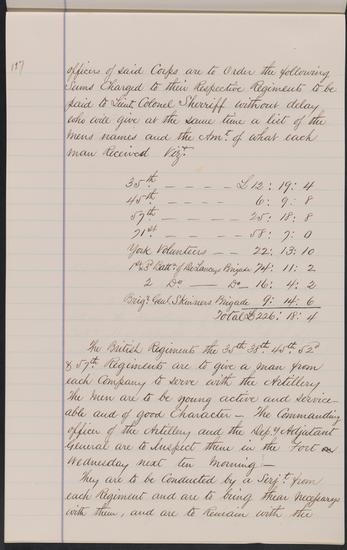 187
officers of said Corps are to Order the following
Sums Charged to their Respective Regiments to be
paid to Lieut Colonel Sherriff without delay
who will give at the same time a list of the
mens names and the Amt. of what each
man Received Vizt.
35th — — — — £12: 19: 4
45th — — — — 6: 9: 8
57th — — — — 25: 18: 8
71st — — — — 58: 7: 0
York Volunteers — — 22: 13: 10
1st & 3d Battn. of DeLanceys Brigade 74: 11: 2
2 Do — — Do — 16: 4: 2
Brigr. Genl Skinners Brigade 9: 14: 6
Total £226: 18: 4
The British Regiments the 35th 38th 45th 52d
& 57th Regiments are to give a man from
each Company to serve with the Artillery
The men are to be young active and service-
able and of good Character — The Commanding
officer of the Artillery and the Depy. Adjutant
General are to Inspect them in the Fort on
Wednesday next ten Morning —
They are to be Conducted by a Serjt. from
each Regiment and are to bring their necessarys
with them, and are to Remain with the